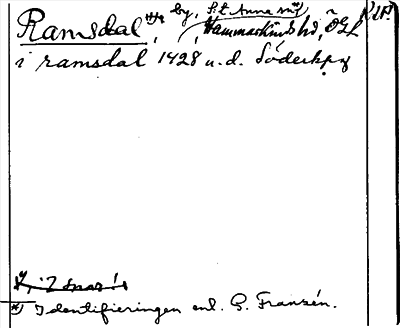 Ramsdal *), by, S:t Anna sn, Hammarkinds hd, ÖGL
i ramsdal 1428 u.d. Söderkpg
*) Identifieringen enl. G. Franzén.